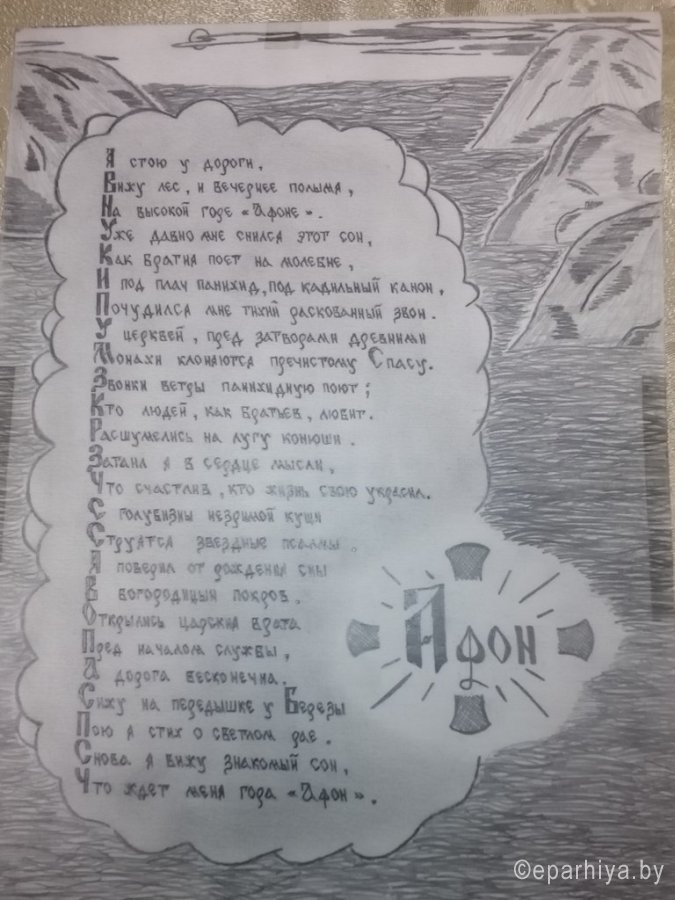 Я стою у дороги,
Вижу лес, и вечернее полымя,
На высокой горе «Афоне».
Уже давно мне снился этот сон,
Как братия поет на молебне,
И под плач панихид, под кадильный канон,
Почудился мне тихий раскованный звон.
У церквей, пред затворами древними
Монахи клоняются пречистому Спасу.
Звонки ветры панихидную поют;
Кто людей, как братьев, любит.
Расшумелись на лугу конюши.
Затаил я в сердце мысли,
Что счастлив, кто жизнь свою украсил.
С голубизны незримой кущи
Струятся звездные псалмы.
Я поверил от рождения сны
В богородицын покров.
Открылись царския врата
Пред началом службы,
А дорога бесконечна.
Сижу на передышке у Березы
Пою я стих о светлом рае.
Снова я вижу знакомый сон,
Что ждет меня гора «Афон».
Афон
©eparhiya.by